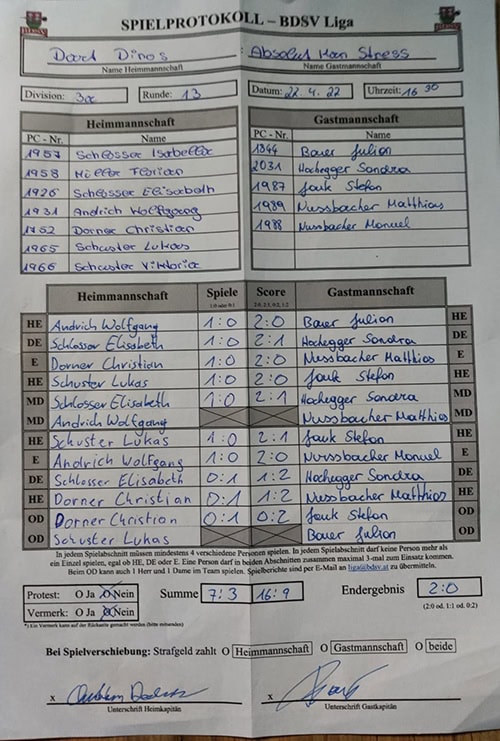 SPIELPROTOKOLL – BDSV Liga
Dart Dinos : Absolut Kan Stress
Name Heimmannschaft Name Gastmannschaft
Division: 3a Runde: 13 Datum: 22.4.22 Uhrzeit: 16 30
Heimmannschaft Gastmannschaft
PC - Nr. Name PC - Nr. Name
1957 Schlosser Isabella 1844 Bauer Julian
1958 Müller Florian 2031 Hochegger Sandra
1926 Schlosser Elisabeth 1987 Jauk Stefan
1931 Andrich Wolfgang 1989 Nussbacher Matthias
1752 Dorner Christian 1988 Nussbacher Manuel
1965 Schuster Lukas
1966 Schuster Viktoria
Heimmannschaft Spiele Score Gastmannschaft
1:0 oder 0:1 2:0, 2:1, 0:2, 1:2
HE Andrich Wolfgang 1:0 2:0 Bauer Julian HE
DE Schlosser Elisabeth 1:0 2:1 Hochegger Sandra DE
E Dorner Christian 1:0 2:0 Nussbacher Matthias E
HE Schuster Lukas 1:0 2:0 Jauk Stefan HE
MD Schlosser Elisabeth 1:0 2:1 Hochegger Sandra MD
MD Andrich Wolfgang Nussbacher Matthias MD
HE Schuster Lukas 1:0 2:1 Jauk Stefan HE
E Andrich Wolfgang 1:0 2:0 Nussbacher Manuel E
DE Schlosser Elisabeth 0:1 1:2 Hochegger Sandra DE
HE Dorner Christian 0:1 1:2 Nussbacher Matthias HE
OD Dorner Christian 0:1 0:2 Jauk Stefan OD
OD Schuster Lukas Bauer Julian OD
In jedem Spielabschnitt müssen mindestens 4 verschiedene Personen spielen. In jedem Spielabschnitt darf keine Person mehr als
ein Einzel spielen, egal ob HE, DE oder E. Eine Person darf in beiden Abschnitten zusammen maximal 3-mal zum Einsatz kommen.
Beim OD kann auch 1 Herr und 1 Dame im Team spielen. Spielberichte sind per E-Mail an liga@bdsv.at zu übermitteln.
Protest: O Ja O Nein Summe 7:3 16:9 Endergebnis 2:0
Vermerk: O Ja O Nein (2:0 od. 1:1 od. 0:2)
*) Ein Vermerk kann auf der Rückseite gemacht werden (bitte umdrehen)
Bei Spielverschiebung: Strafgeld zahlt O Heimmannschaft O Gastmannschaft O beide
x x
Unterschrift Heimkapitän Unterschrift Gastkapitän